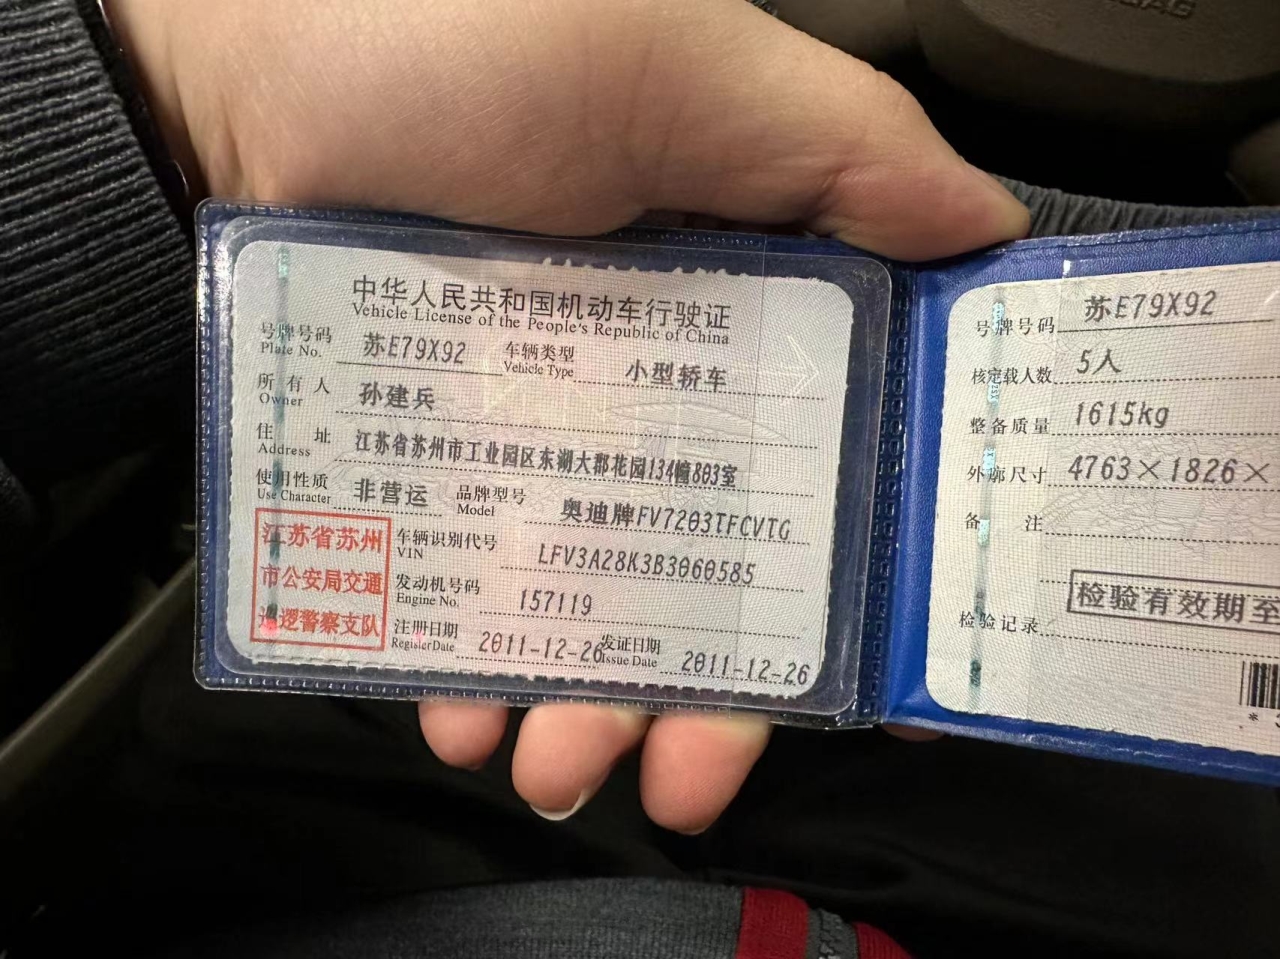 中华人民共和国机动车行驶证
Vehicle License of the People's Republic of China
号牌号码 苏E79X92 车辆类型 小型轿车
Plate No. Vehicle Type
所有人 孙建兵
Owner
住址 江苏省苏州市工业园区东湖大郡花园134幢803室
Address
使用性质 非营运 品牌型号 奥迪牌FV7203TFCVTG
Use Character Model
江苏省苏州
市公安局交通
巡逻警察支队
车辆识别代号 LFV3A28K3B3060585
VIN
发动机号码 157119
Engine No.
注册日期 2011-12-26 发证日期 2011-12-26
Register Date Issue Date
号牌号码 苏E79X92
核定载人数 5人
整备质量 1615kg
外廓尺寸 4763×1826×
备注
检验有效期至
检验记录